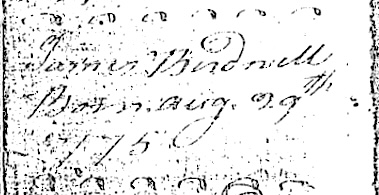 James Birdwell
Born Aug. 29th
1775